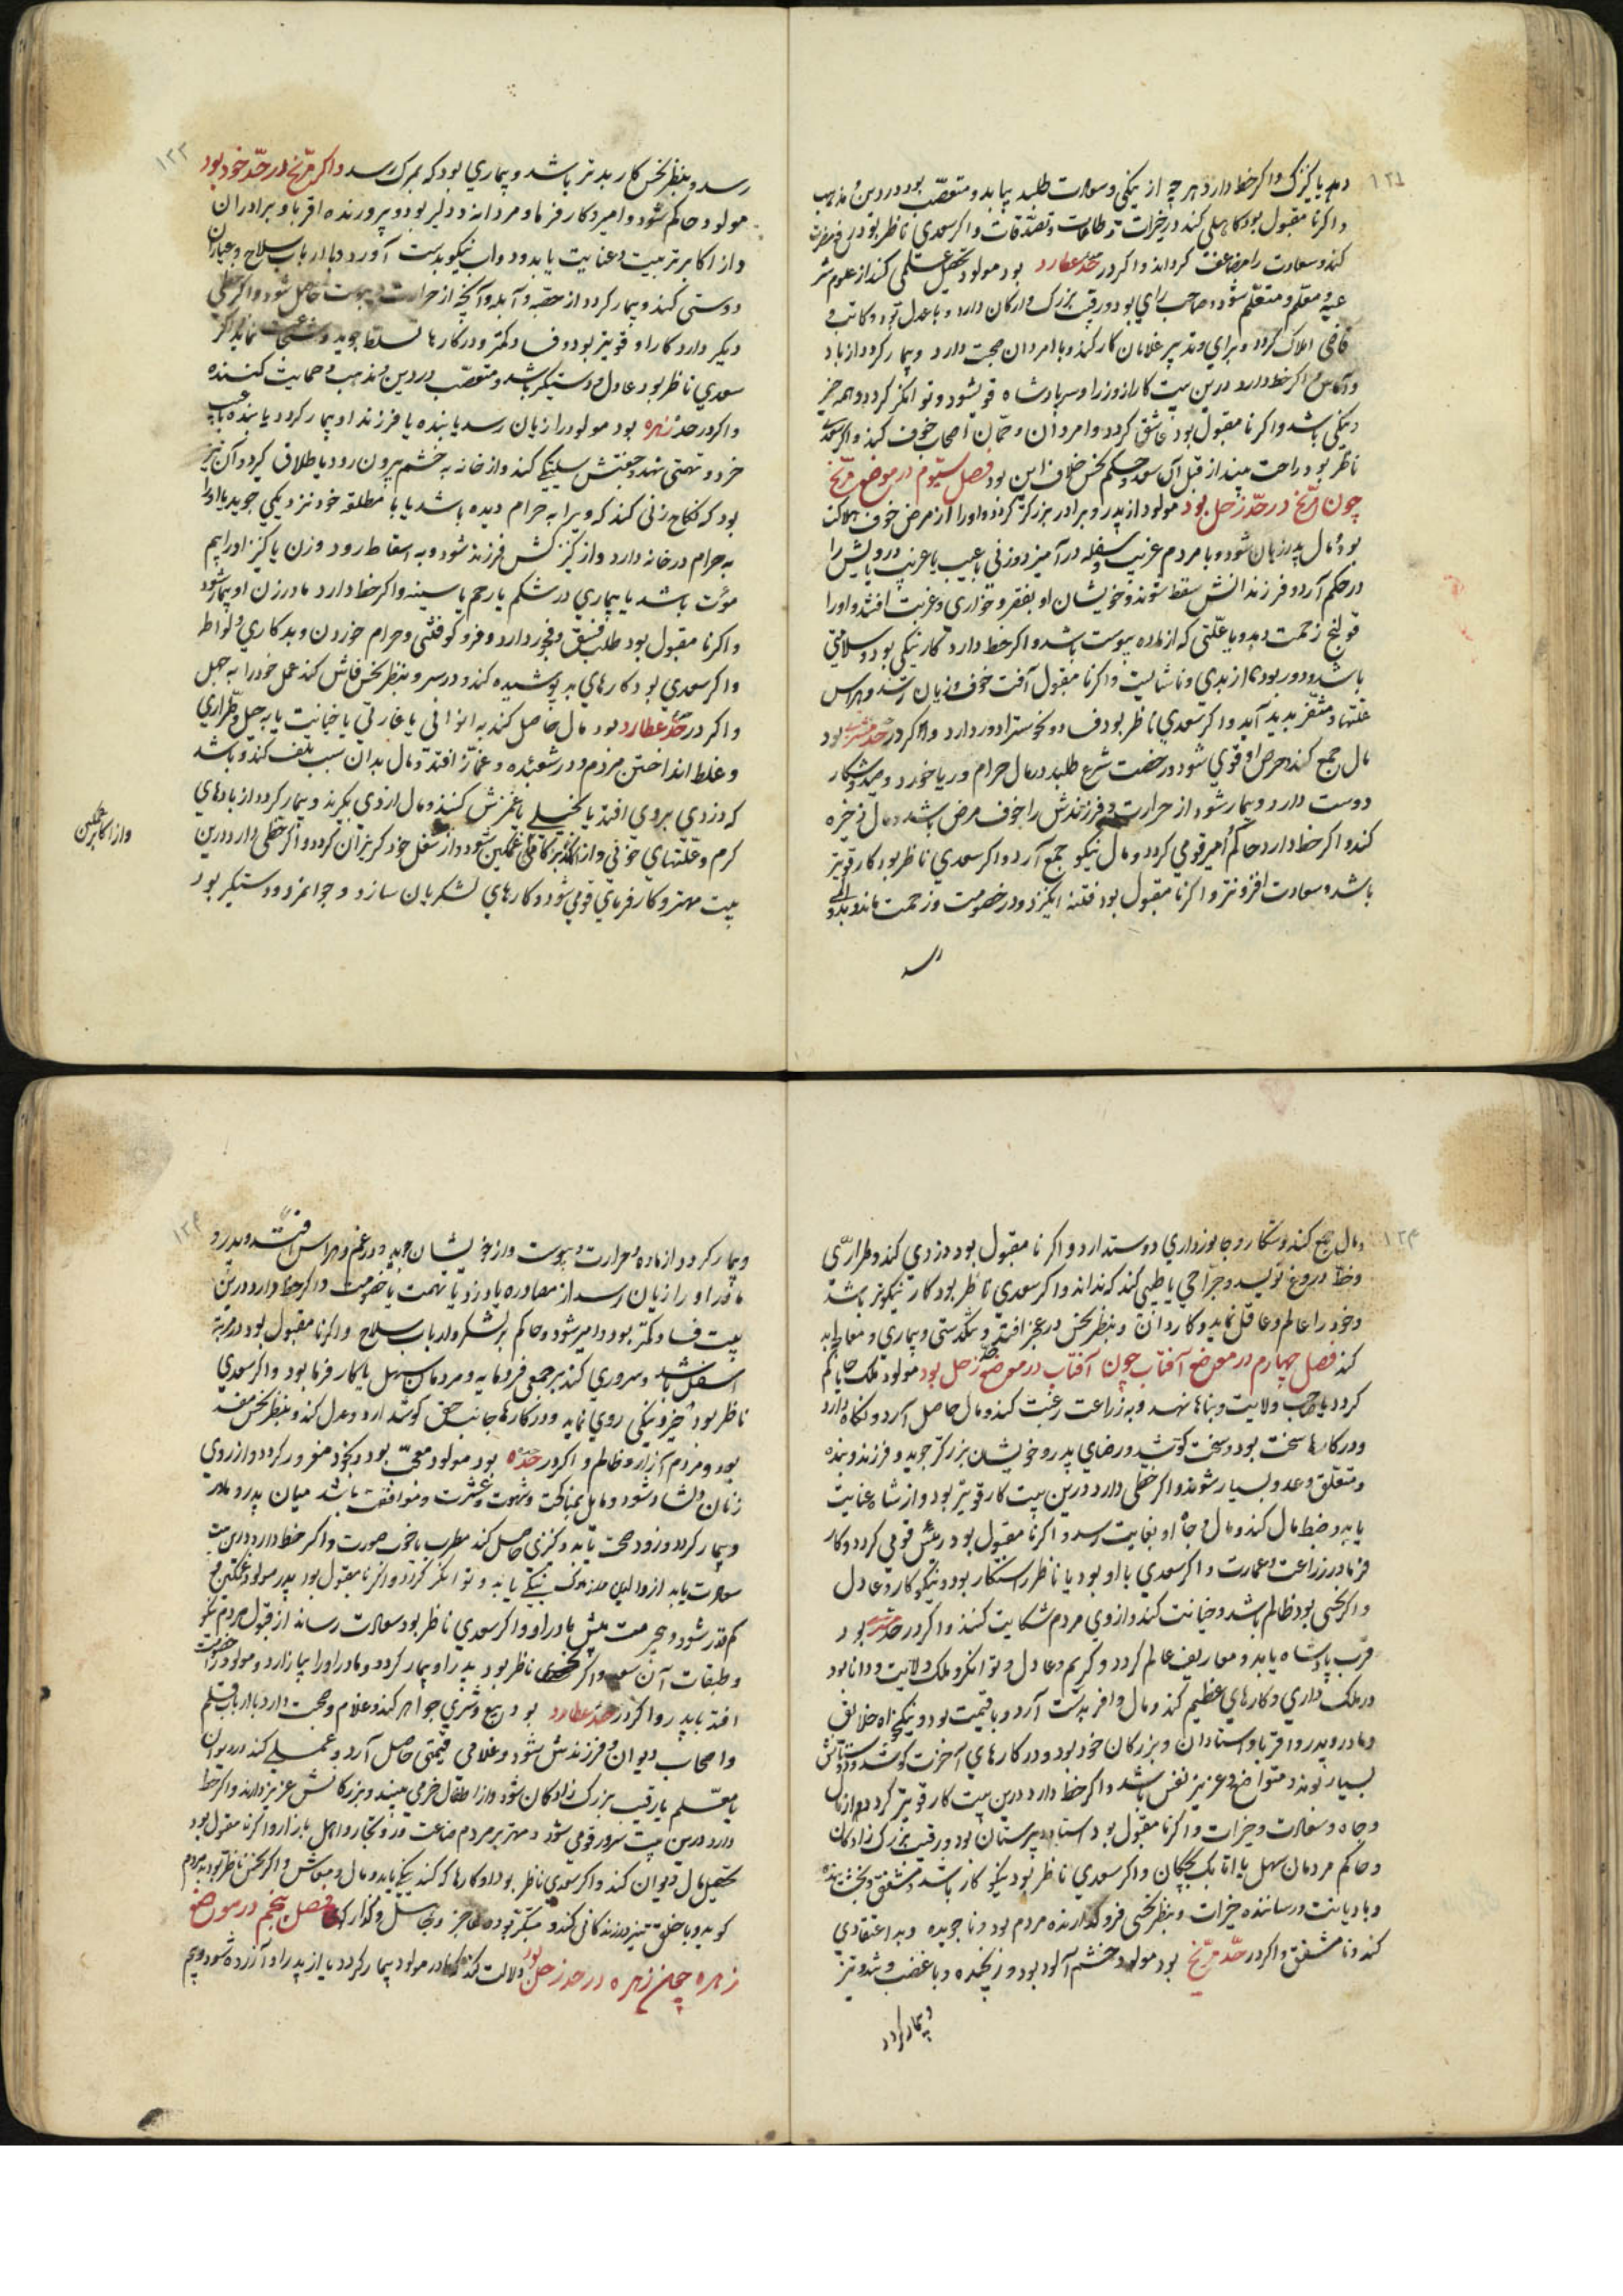 ۱۲۱
دهد یا کنیزک و اکر خط دارد هر چه از نیکی و سعادت طلبد بیابد و متعصّب بود در دین و مذهب
و اکر نا مقبول بود کاهلی کند در خیرات و طاعات و تصدّقات و اکر سعدی ناظر بود
کند و سعادت را مضاعف کرداند و اکر در حدّ عطارد بود مولود تحصیل علمی کند از علوم شر
عیه و معلّم و متعلّم شود و صاحب رای بود و رقیب بزرک و ارکان دارد و با عدل بود و کاتب و
قاضی املاک کردد و برای و تدبیر غلامان کار کند و با امردان صحبت دارد و بیمار کردد از باد
و اکر خط دارد درین بیت کار از وزرا و سر پادشاه قوی شود و توانکر کردد و همه خیر
و نیکی باشد و اکر نا مقبول بود عاشق کردد و امردان و اصحاب خوف کند و اکر سعدی
ناظر بود راحت بیند از قبل آن سعد و حکم نحس خلاف این بود فصل سیّوم در موضع مرّیخ
چون مرّیخ در حدّ زحل بود مولود از پدر و برادر بزرکتر کردد و او را از مرض خوف هلاکت
بود و مال پدر زیان شود و با مردم غریب و سفله در آمیزد و زنی با عیب یا غریب یا درویش را
در حکم آرد و فرزندانش سقط شوند و خویشان او بفقر و خواری و غربت افتند و او را
قولنج زحمت دهد و یا علّتی که از ماده یبوست باشد و اکر خط دارد کار نیکی بود و سلامتی
باشد و دور بود از بدی و ناشایست و اکر نا مقبول آفت خوف و زیان رسد و هراس
علّتها متنفّر پدید آید و اکر سعدی ناظر بود فساد و نحوستها دور دارد و اکر در حدّ مشتری بود
مال جمع کند و حرص او قوی شود و رخصت شرع طلبد در مال حرام و ربا خورد و صید و شکار
دوست دارد و بیمار شود از حرارت و فرزندش را خوف مرض باشد و مال ذخیره
کند و اکر خط دارد حاکم و امیر قومی کردد و مال نیکو جمع آرد و اکر سعدی ناظر بود کار قویتر
باشد و سعادت افزونتر و اکر نا مقبول بود فتنه انکیزد و در خصومت و زحمت ماند و بدو
رسد
۱۲۲
رسد و بنظر نحس کار بدتر باشد و بیماری بود که بمرک رسد و اکر مرّیخ در حدّ خود بود
مولود حاکم شود و امیر و کار فرما و مردانه و دلیر بود و پرورنده اقربا و برادران
و از اکابر تربیت و عنایت یابد و دواب نیکو بدست آورد و با ارباب سلاح و عیاران
دوستی کند و بیمار کردد از حصبه و آبله و آنچه از حرارت و یبوست حاصل شود و اکر خطی
دیکر دارد کار او قویتر بود و فساد کمتر و در کارها تسلط جوید و شجاعت نماید و اکر
سعدی ناظر بود عادل و دستکیر باشد و متعصّب در دین و مذهب و حمایت کننده
و اکر در حدّ زهره بود مولود را زیان رسد یا بنده یا فرزند او بیمار کردد یا بنده با عیب
خرد و تهمتی نهد و جفتش سلیتکی کند و از خانه به خشم بیرون رود یا طلاق کیرد و آن نیز
بود که نکاح زنی کند که ویرا به حرام دیده باشد یا با مطلقه خود نزدیکی جوید یا او را
به حرام در خانه دارد و از کنیزکش فرزند شود و به اسقاط رود و زن یا کنیز او را بیم
موت باشد یا بیماری در شکم یا رحم یا سینه و اکر خط دارد مادر زن او بیمار شود
و اکر نا مقبول بود طلب فسق و فجور دارد و فرو کوفتنی و حرام خوردن و بدکاری و لواط
و اکر سعدی بود کارهای بد پوشیده کند و در سر و بنظر نحس فاش کند عمل خود را به جهل
و اکر در حدّ عطارد بود مال حاصل کند به اعوانی یا غارتی یا خیانت یا به حیل و طرّاری
و غلط انداختن مردم و در شعبده و غمّاز افتد و مال بدان سبب تلف کند و باشد
که دزدی بروی افتد یا نخیلی یا غمزش کنند و مال از وی بکیرند و بیمار کردد از بادهای
کرم و علّتهای خونی و از اکابر غمکین شود و از شغل خود کریزان کردد و اکر خطی دارد درین
بیت مهتر و کار فرمای قومی شود و کارهای لشکریان سازد و جوانمرد و دستکیر بود
و از اکابر غمکین
۱۲۳
و مال جمع کند و شکار و جانورداری دوست دارد و اکر نا مقبول بود دزدی کند و طرّاری
و خطّ دروغ نویسد و جرّاحی یا طبیبی کند که نداند و اکر سعدی ناظر بود کار نیکوتر باشد
و خود را عالم و عاقل نماید و کاردان و بنظر نحس در عجز افتد و تنکدستی و بیماری و معالجه بد
کند فصل چهارم در موضع آفتاب چون آفتاب در موضع حدّ زحل بود مولود ملک یا حاکم
کردد یا صاحب ولایت و بناها نهد و به زراعت رغبت کند و مال حاصل آرد و نکاه دارد
و در کارها سخت بود و سخت کوشد و رضای پدر و خویشان بزرکتر جوید و فرزند و بنده
و متعلّق و عدو بسیار شوند و اکر خطی دارد درین بیت کار قویتر بود و از شاه عنایت
یابد و ضبط مال کند و مال و جاه او بغایت رسد و اکر نا مقبول بود رئیس قومی کردد و کار
فرما در زراعت و عمارت و اکر سعدی با او بود یا ناظر راستکار بود و نیکو کار و عادل
و اکر نحسی بود ظالم باشد و خیانت کند و از وی مردم شکایت کنند و اکر در حدّ مشتری بود
قرب پادشاه یابد و معاریف عالم کردد و کریم و عادل و توانکر و ملک ولایت و دانا بود
در ملک داری و کارهای عظیم کند و مال وافر بدست آرد و با قیمت بود و نیکخواه خلایق
و مادر و پدر و اقربا و استادان و بزرکان خود بود و در کارهای آخرت کوشد و دوستانش
بسیار بوند و متواضع و عزیز نفس باشد و اکر خط دارد درین بیت کار قویتر کردد از مال
و جاه و سعادت و خیرات و اکر نا مقبول بود استاد دبیرستان بود و رقیب بزرک زادکان
و حاکم مردمان سهل یا اتابک بچکان و اکر سعدی ناظر بود نیکو کار باشد و مشفق و بخشنده
و با دیانت و رساننده خیرات و بنظر نحسی فرو کذارنده مردم بود و ناجوینده و بد اعتقادی
کند و نا مشفق و اکر در حدّ مرّیخ بود مولود خشم آلود بود و رنجنده و با غضب و تند و تیز
و بیمار کردد
۱۲۴
و بیمار کردد از ماده حرارت و یبوست و از خویشان جوید و در غم و هراس افتد و پدر و
مادر او را زیان رسد از مصادره یا دزد یا تهمت یا خصومت و اکر خط دارد درین
بیت فساد کمتر بود و امیر شود و حاکم بر لشکر و ارباب سلاح و اکر نا مقبول بود در مرتبه
اسفل باشد و سروری کند بر جمعی فرومایه و مردمان سهل یا کار فرما بود و اکر سعدی
ناظر بود خیر و نیکی روی نماید و در کارها جانب حق کوشد و داد و عدل کند و بنظر نحس مفسد
بود و مردم آزار و ظالم و اکر در حدّ زهره بود مولود معجب بود و بخود مغرور کردد و از روی
زنان دلشاد شود و مایل بمناکحت و شهوت و عشرت و موافقت باشد میان پدر و مادر
و بیمار کردد و زود صحت یابد و کنیزی حاصل کند مطرب یا خوب صورت و اکر خط دارد درین بیت
سعادت یابد از والدین و نیکی یابد و توانکر کردد و اکر نا مقبول بود پدر مولود غمکین و
کم قدر شود و بی حرمت پیش مادر او و اکر سعدی ناظر بود سعادت رساند از قبول مردم نیکو
و طبقات آن سعد و اکر نحسی ناظر بود پدر او بیمار کردد و مادر او را بیازارد و مولود را خصومت
افتد با پدر و اکر در حدّ عطارد بود بیع و شری جواهر کند و غلام و صحبت دارد با ارباب قلم
و اصحاب دیوان و فرزندش شود و غلامی قیمتی حاصل آرد و عملی کند در دیوان
یا معلّم یا رقیب بزرک زادکان شود و از اطفال خرّمی بیند و بزرکانش عزیز دارند و اکر خط
دارد درین بیت سرور قومی شود و مهتر بر مردم صناعت ور و تجار و اهل بازار و اکر نا مقبول بود
تحصیل مال دیوان کند و اکر سعدی ناظر بود از کارها که کند نیکی یابد و مال و معاش و اکر نحس ناظر بود بد مردم
کوید و با خلق تیز زندکانی کند و متکبّر بود و عاجز و کاهل و کذارکی فصل پنجم در موضع
زهره چون زهره در حدّ زحل بود دلالت کند که مادر مولود بیمار کردد یا از پدر او آزرده شود و بیم